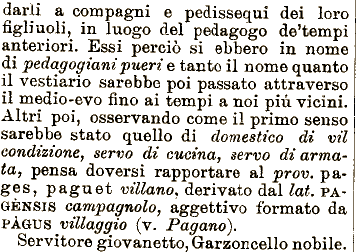 darli a compagni e pedissequi dei loro
figliuoli, in luogo del pedagogo de'tempi
anteriori. Essi perciò si ebbero in nome
di pedagogiani pueri e tanto il nome quanto
il vestiario sarebbe poi passato attraverso
il medio-evo fino ai tempi a noi piú vicini.
Altri poi, osservando come il primo senso
sarebbe stato quello di domestico di vil
condizione, servo di cucina, servo di arma-
ta, pensa doversi rapportare al prov. pa-
ges, paguet villano, derivato dal lat. PA-
GÈNSIS campagnolo, aggettivo formato da
PÀGUS villaggio (v. Pagano).
Servitore giovanetto, Garzoncello nobile.